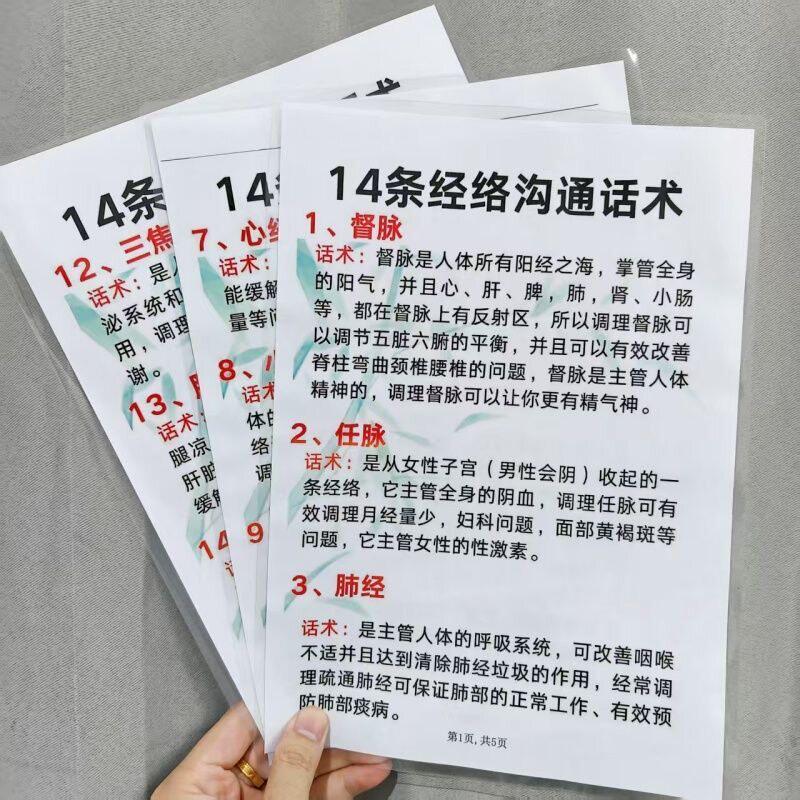 14条经络沟通话术
1、督脉
话术：督脉是人体所有阳经之海，掌管全身
的阳气，并且心、肝、脾，肺，肾、小肠
等，都在督脉上有反射区，所以调理督脉可
以调节五脏六腑的平衡，并且可以有效改善
脊柱弯曲颈椎腰椎的问题，督脉是主管人体
精神的，调理督脉可以让你更有精气神。
2、任脉
话术：是从女性子宫（男性会阴）收起的一
条经络，它主管全身的阴血，调理任脉可有
效调理月经量少，妇科问题，面部黄褐斑等
问题，它主管女性的性激素。
3、肺经
话术：是主管人体的呼吸系统，可改善咽喉
不适并且达到清除肺经垃圾的作用，经常调
理疏通肺经可保证肺部的正常工作、有效预
防肺部痰病。
第1页，共5页
14
7、心经
话术：
能缓解
量等问
8、小
话术
体的
络
调
9
14条
术
12、三焦
话术：是
泌系统和
用，调理
谢。
13、
话术：
腿凉
肝脏
缓解
14
话